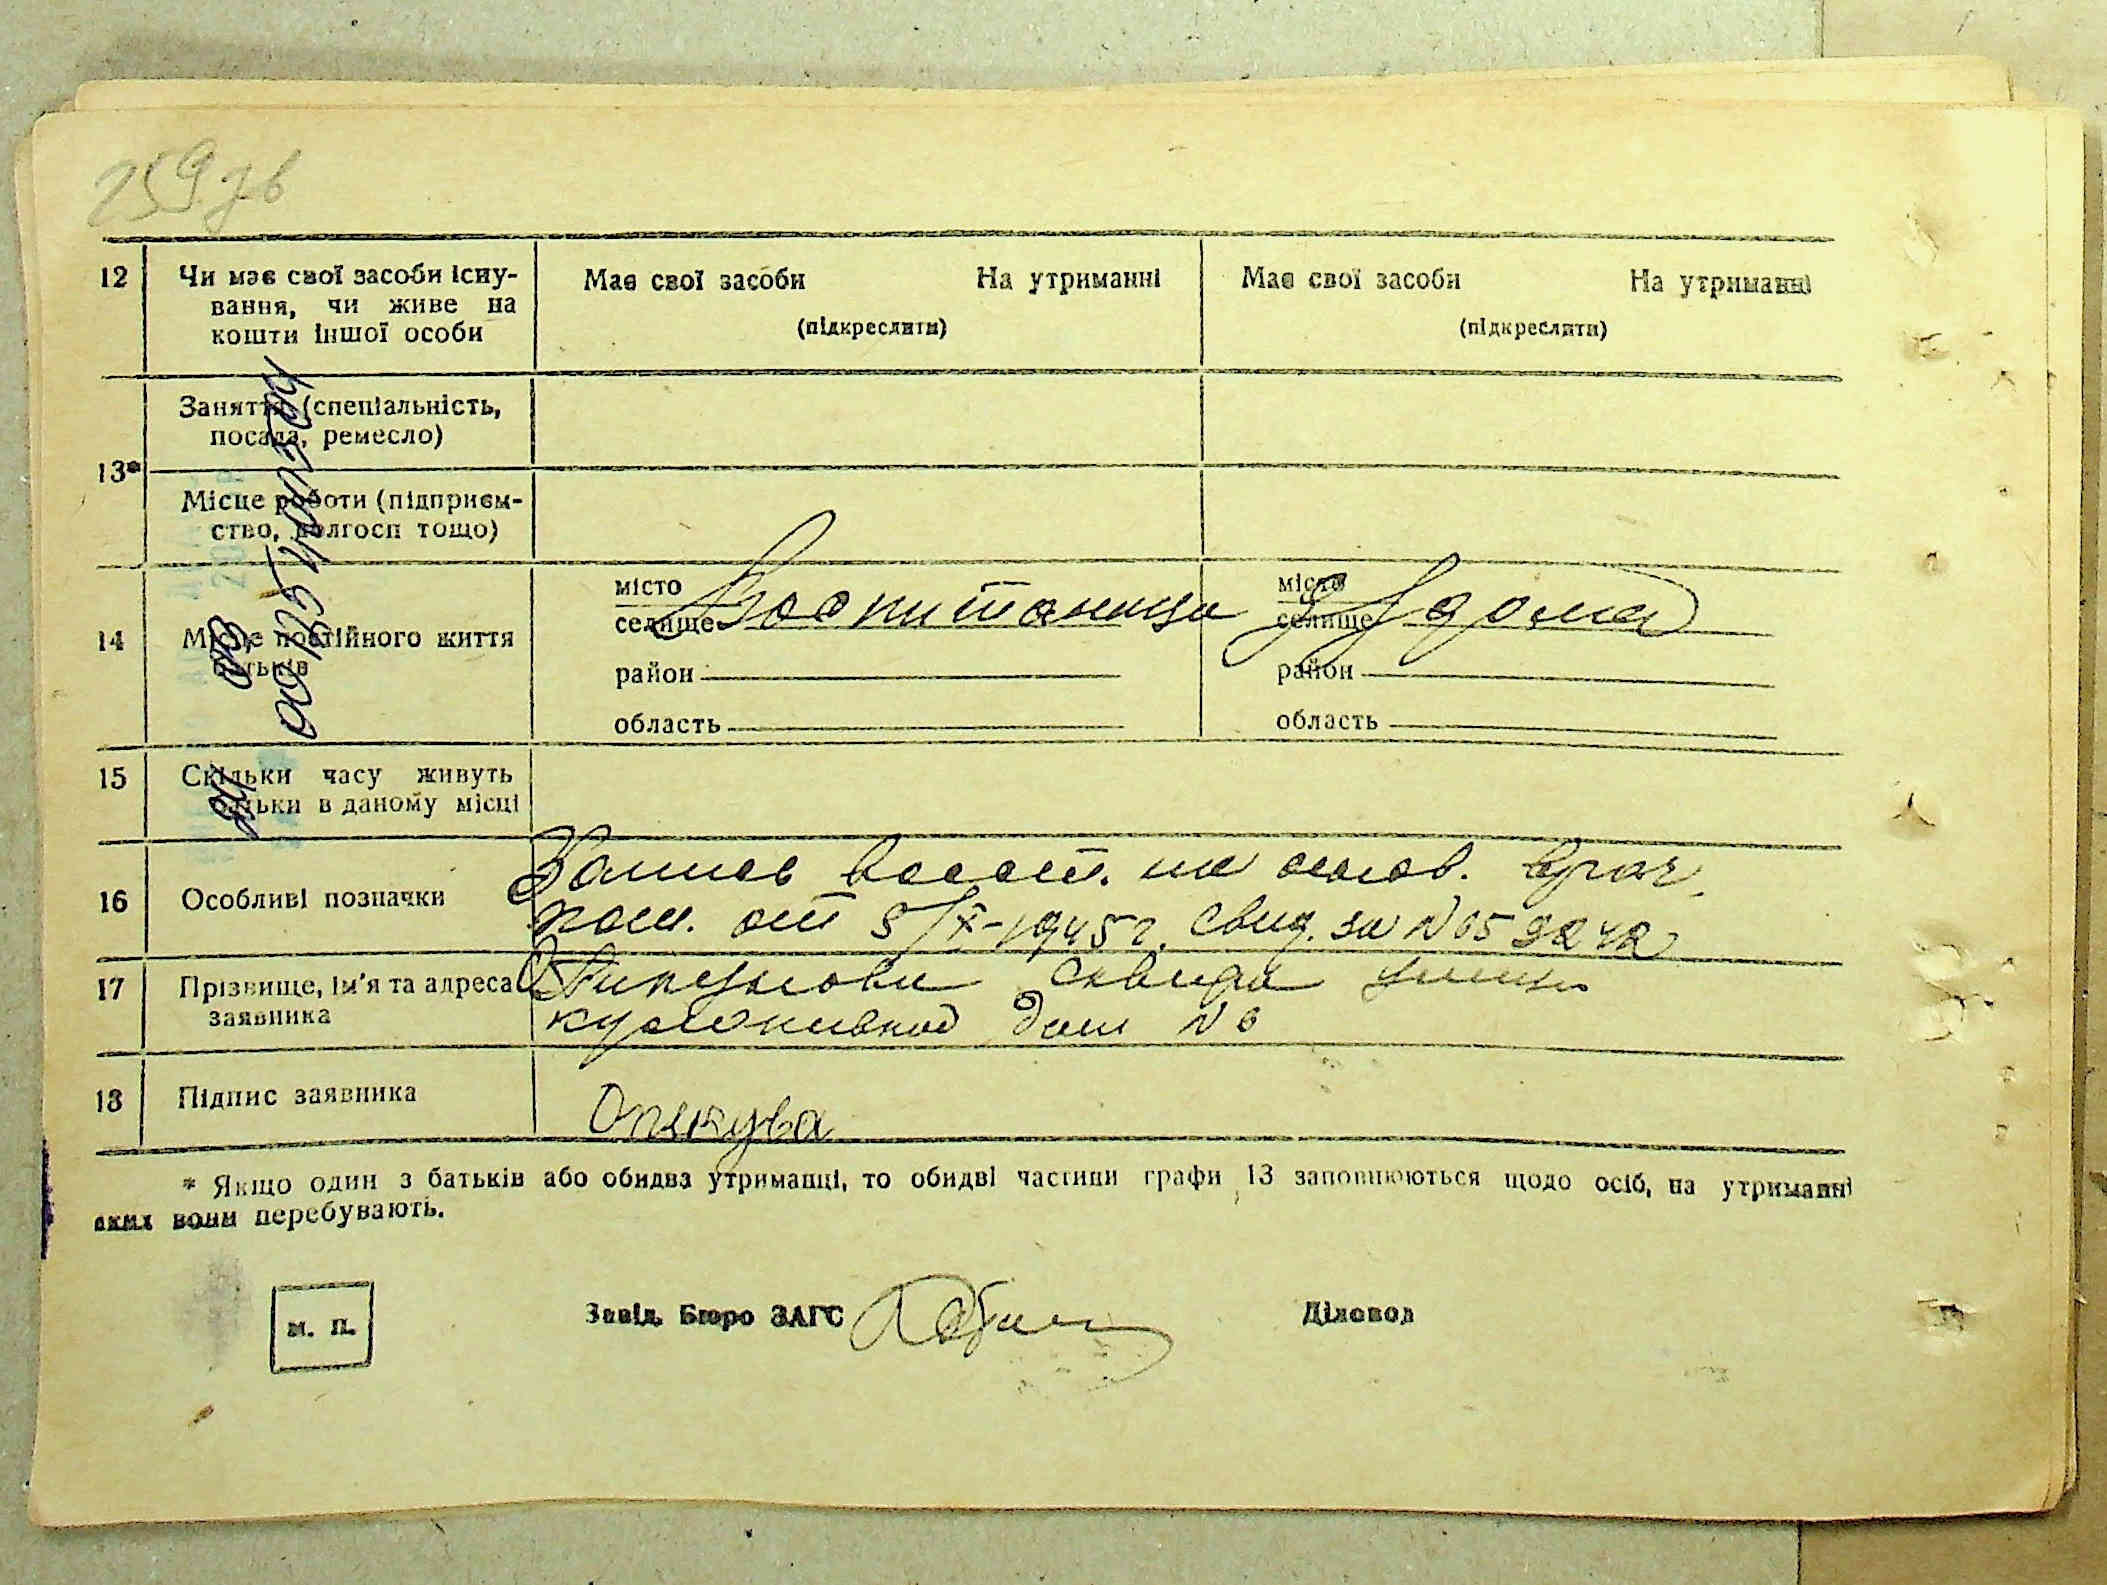 259 зв
12 Чи має свої засоби існу-
вання, чи живе на
кошти іншої особи
Має свої засоби На утриманні
(підкреслити)
Має свої засоби На утриманні
(підкреслити)
13* Заняття (спеціальність,
посада, ремесло)
Місце роботи (підприєм-
ство, колгосп тощо)
14 Місце постійного життя
батьків
місто
селище
район
область
місто
селище
район
область
Воспитаница Д/дома
15 Скільки часу живуть
батьки в даному місці
16 Особливі позначки
Запись восст. на основ. врач.
от 5/X-1945 г. свид. за N
17 Прізвище, ім'я та адреса
заявника
Сквира
дом N 6
18 Підпис заявника
* Якщо один з батьків або обидва утриманці, то обидві частини графи 13 заповнюються щодо осіб, на утриманні
яких вони перебувають.
м. п.
Завід. Бюро ЗАГС
Діловод